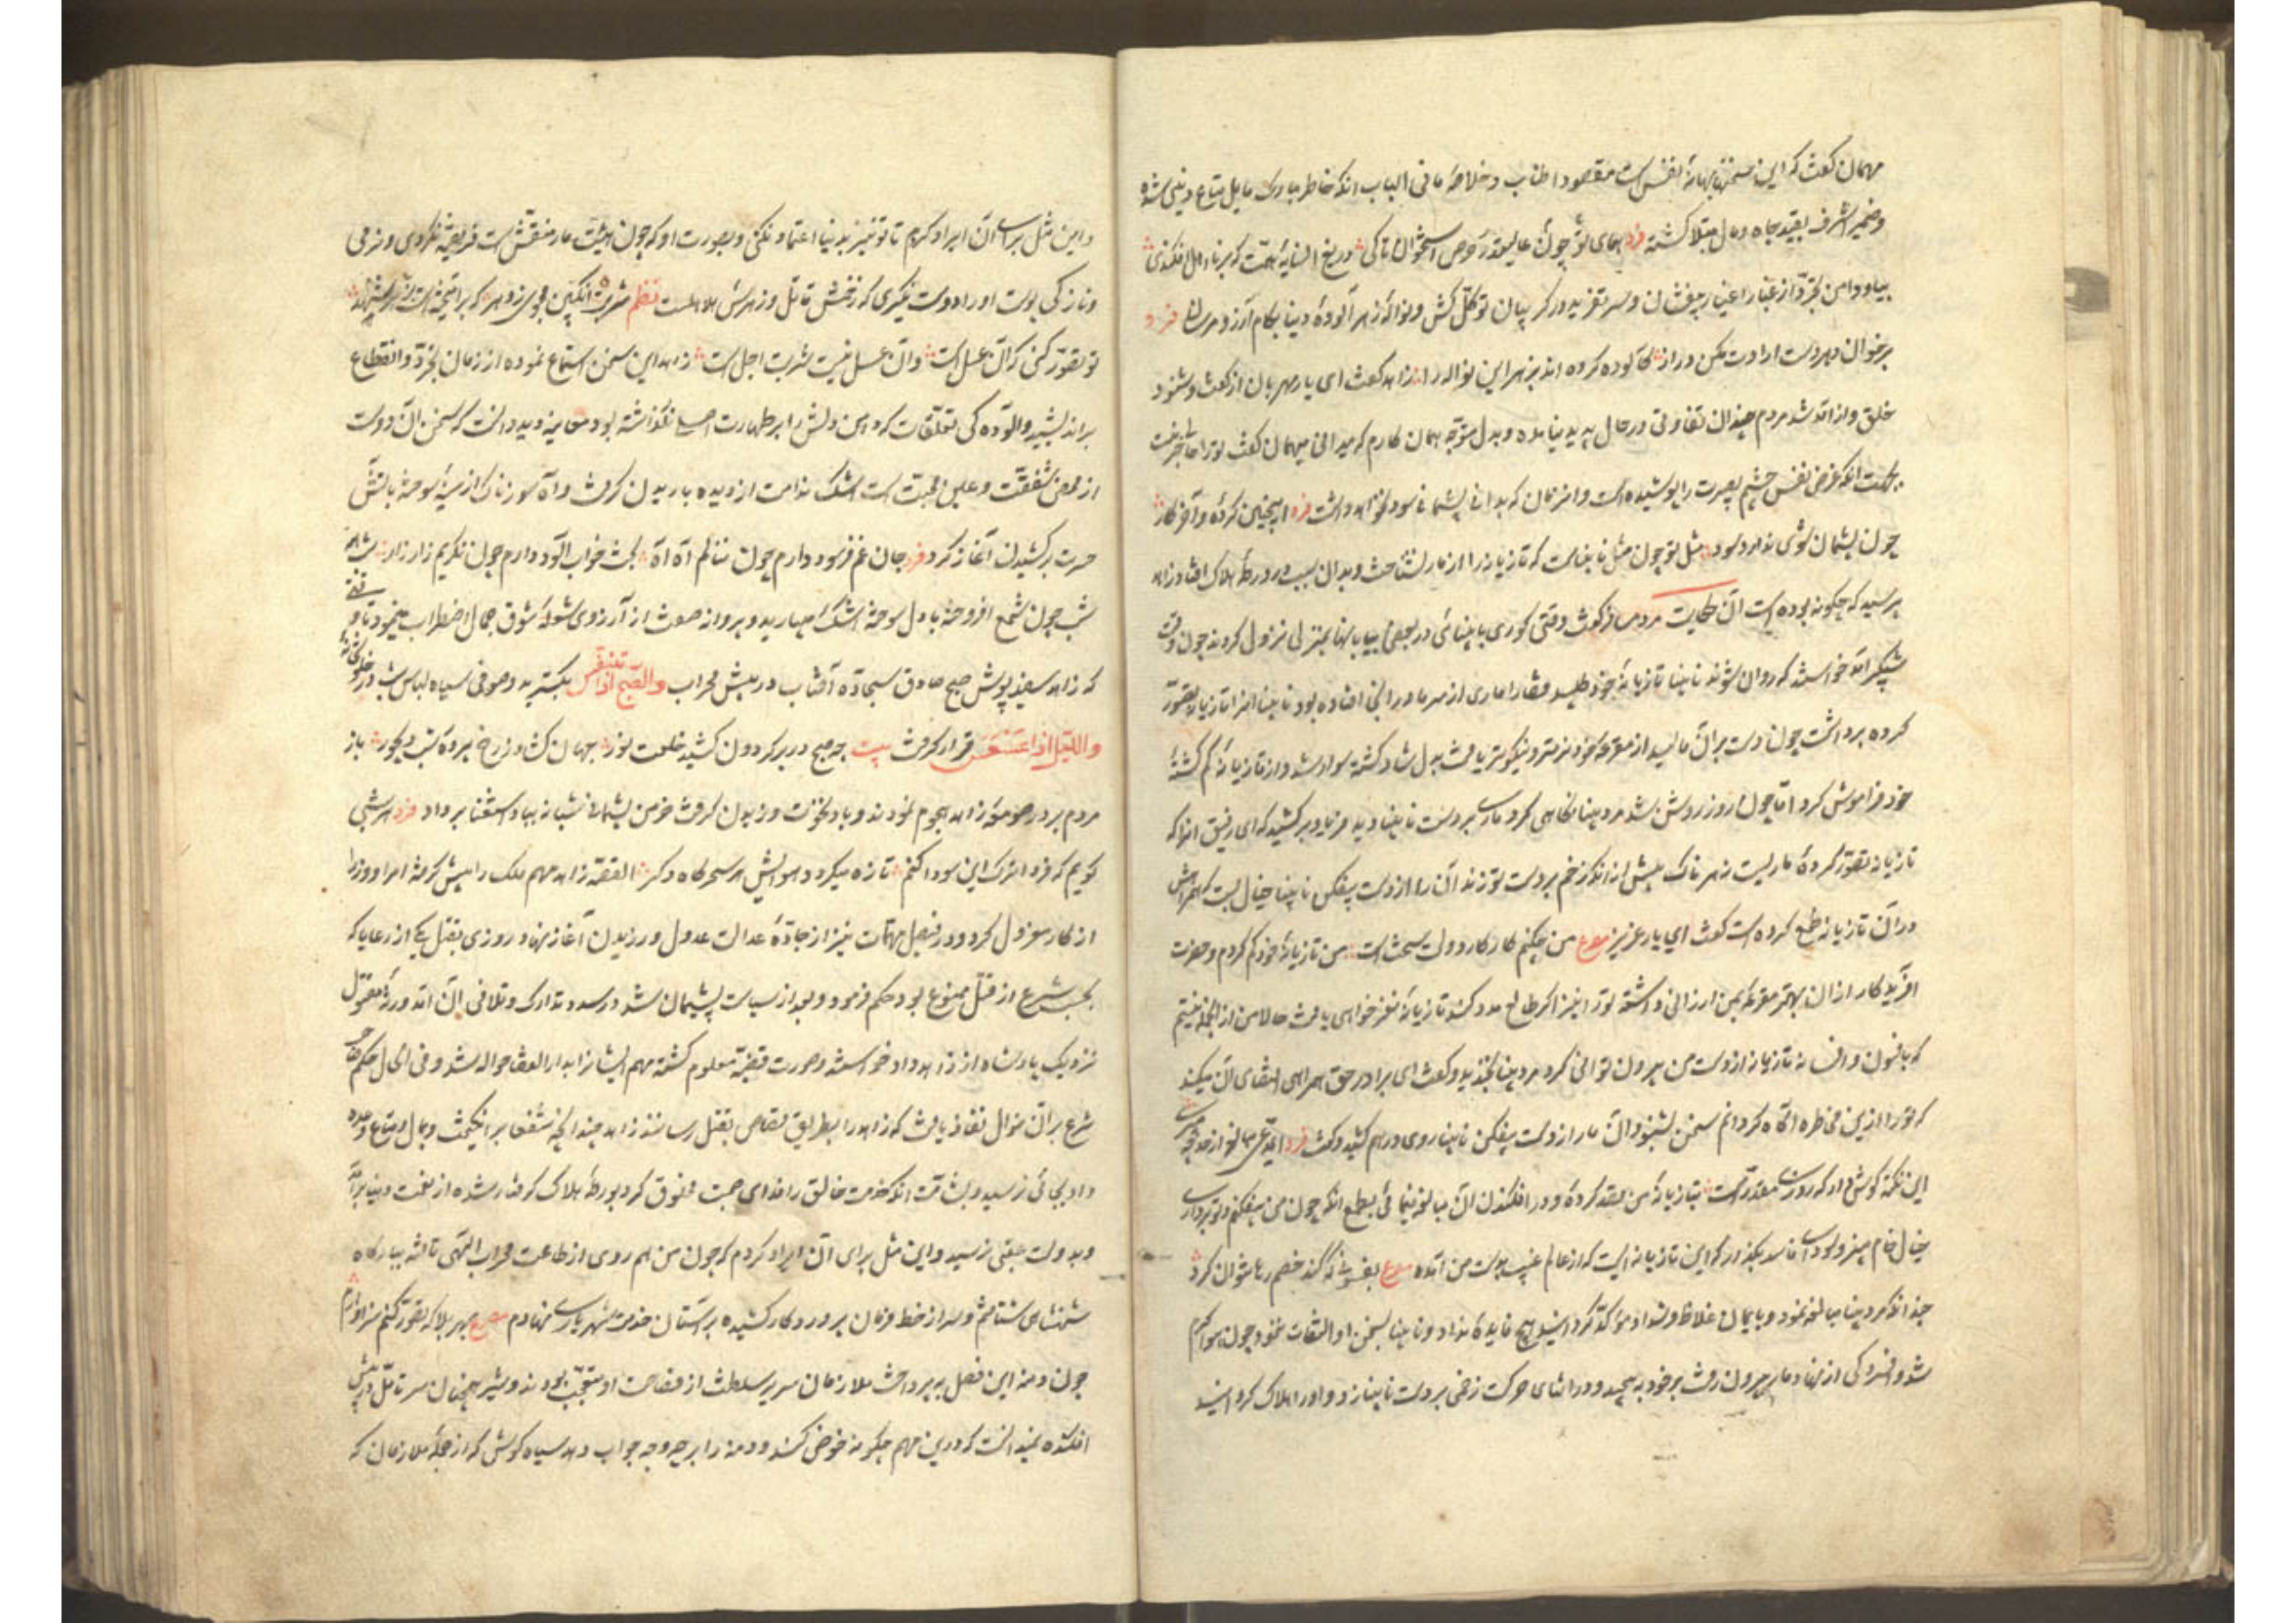 مهمان کفت که این سخنها بهانهٔ نفس است مقصود اطناب و خلاصهٔ ما فی الباب آنکه خاطر مبارک مایل متاع دنیی شده
و ضمیر اشرف بقید جاه و مال مبتلا کشته فرد همای تو چون عالیقدر حرص استخوان تا کی دریغ السایهٔ همت که بر نا اهل افکندی
بیا و دامن تجرد از غبار اغیار بیفشان و سر تفرید در کریبان توکل کش و نوالهٔ زهر آلودهٔ دنیا بکام آرزو مرسان فرد
بر خوان دهر دست ارادت مکن دراز کآلوده کرده اند بزهر این نواله را زاهد کفت ای یار مهربان از کفت و شنود
خلق و از آمد شد مردم چندان تفاوتی در حال پدید نیامده و بدل متوجه همان کارم که میدانی میهمان کفت ترا حالا خبر نیست
بجهت آنکه غرض نفس چشم بصیرت را پوشیده است و آنزمان که بدانی پشیمانی سود نخواهد داشت فرد این چنین کرده و آخر کار
چون پشیمان شوی ندارد سود مثل تو چون مثل نابیناست که تازیانه را از مار نشناخت و بدان سبب در ورطهٔ هلاک افتاد زاهد
پرسید که چکونه بوده است آن حکایت مرد مسافر کفت وقتی کوری با بینائی در بعضی بیابانها بمنزلی نزول کردند چون وقت
شبکیر آمد خواستند که روان شوند نابینا تازیانهٔ خود طلبید قضا را ماری از سرما در آنجا افتاده بود نابینا انرا تازیانه تصور
کرده برداشت چون دست بر آن مالید از مقرعهٔ خود نرمتر و نیکوتر یافت بدل شاد کشته سوار شد و از تازیانهٔ کم کشتهٔ
خود فراموش کرد اما چون روز روشن شد مرد بینا نکاهی کرد ماری بر دست نابینا دید فریاد بر کشید که ای رفیق آنرا که
تازیانه تصور کردهٔ ماریست زهرناک پیش از آنکه زخم بر دست تو زند آن را از دست بیفکن نابینا خیال بست که همراهش
در آن تازیانه طمع کرده است کفت ای یار عزیز مصرع من چکنم کار کار دولت و بخت است من تازیانهٔ خود کم کردم و حضرت
آفریدکار از ان بهتر مقرعهٔ بمن ارزانی داشته ترا نیز اکر طالع مدد کند تازیانهٔ نغز خواهی یافت حالا من از انجمله نیستم
که بافسون و افسانه تازیانه از دست من بیرون توانی کرد مرد بینا بخندید و کفت ای برادر حق همراهی اقتضای آن میکند
که ترا ازین مخاطره آکاه کردانم سخن بشنو و آن مار از دست بیفکن نابینا روی درهم کشید و کفت فرد ای مدعی
این نکته کوش دار که روزی مقدرست بتازیانهٔ من قصد کردهٔ و در افکندن آن مبالغه مینمائی بطمع انکه چون من بیفکنم تو برداری
خیال خام مپز و سودای فاسد بکذار که این تازیانه ایست که از عالم غیب بدست من آمده مصرع بفسونی که کند خصم رها نتوان کرد
چندانکه مرد بینا مبالغه نمود و بایمان غلاظ و شداد مؤکد کردانید هیچ فایده نداد و نابینا بسخن او التفات ننمود چون هوا کرم
شد و افسردکی از نهاد مار بیرون رفت بر خود بپیچید و در اثنای حرکت زخمی بر دست نابینا زد و او را هلاک کردانید
و این مثل برای آن ایراد کردم تا تو نیز بدنیا اعتماد نکنی و بصورت او که چون هیئت مار منقش است فریفته نکردی و نرمی
و نازکی پوست او را دوست نکیری که زخمش قاتل و زهرش هلاهلست نظم شربت انکبین مجوی ز دهر که بر آمیخته است
تو تصور کنی که آن عسل است وآن عسل نیست شربت اجل است زاهد این سخن استماع نموده از زمان تجرد و انقطاع
بر اندیشید و آلوده کی تعلقات که دامن دلش را بر طهارت اصلی نکذاشته بود معاینه دید دانست که سخن آن دوست
از محض شفقت و عین محبت است اشک ندامت از دیده باریدن کرفت و آه سوزناک از سینهٔ سوخته بآتش
حسرت بر کشیدن آغاز کرد فرد جان غم فرسود دارم چون ننالم آه آه بخت خواب آلود دارم چون نکریم زار زار همه
شب چون شمع افروخته با دل سوخته اشک میبارید و پروانه صفت از آرزوی شعلهٔ شوق جمال اضطراب مینمود تا وقتی
که زاهد سفید پوش صبح صادق سجادهٔ آفتاب در پیش محراب والصبح اذا تنفس بکسترید و صوفی سیاه لباس شب در خلوتخانهٔ
واللیل اذا عسعس قرار کرفت بیت چه صبح در بر کردون کشید خلعت نور جهان کشاد ز رخ پردهٔ شب دیجور باز
مردم بر در صومعهٔ زاهد هجوم نمودند و باد نخوت وزیدن کرفت خرمن پشیمانی شبانه بباد استغنا بر داد فرد هر شبی
کویم که فردا ترک این سودا کنم تازه میکردد هوایش هر سحرکاه دکر القصه زاهد مهم ملک را پیش کرفته امرا و وزرا
از کار معزول کرد و در فیصل مهمات نیز از جادهٔ عدالت عدول ورزیدن آغاز نهاد روزی بقتل یکی از رعایا که
بحسب شرع از قتل ممنوع بود حکم فرمود و بعد از سیاست پشیمان شد در صدد تدارک و تلافی آن آمد ورثهٔ مقتول
نزدیک پادشاه از زاهد داد خواستند و صورت قضیه معلوم کشته مهم ایشانرا بدار القضا حواله شد و فی الحال حکم
شرع بر آن منوال نفاذ یافت که زاهد را بطریق قصاص بقتل رسانند زاهد چندانچه شفعا بر انکیخت و بمال و متاع وعده
داد بجائی نرسید و بشآمت آنکه خدمت خالق را فدای صحبت مخلوق کرد بورطهٔ هلاک کرفتار شده از نعمت دنیا بر آمد
و بدولت عقبی نرسید و این مثل برای آن ایراد کردم که چون من هم روی از طاعت محراب الهی تافته ببارکاه
شهنشاهی شتافتم و سر از خط فرمان پروردکار کشیده بر آستان خدمت شهریاری نهادم مصرع بهر بلا که تصور کنم سزاوارم
چون دمنه این فصل بپرداخت ملازمان سریر سلطنت از فصاحت او متعجب بودند و شیر همچنان سر تامل در پیش
افکنده نمیدانست که درین مهم چکونه خوض کند و دمنه را بر چه وجه جواب دهد سیاه کوش که از جملهٔ ملازمان که